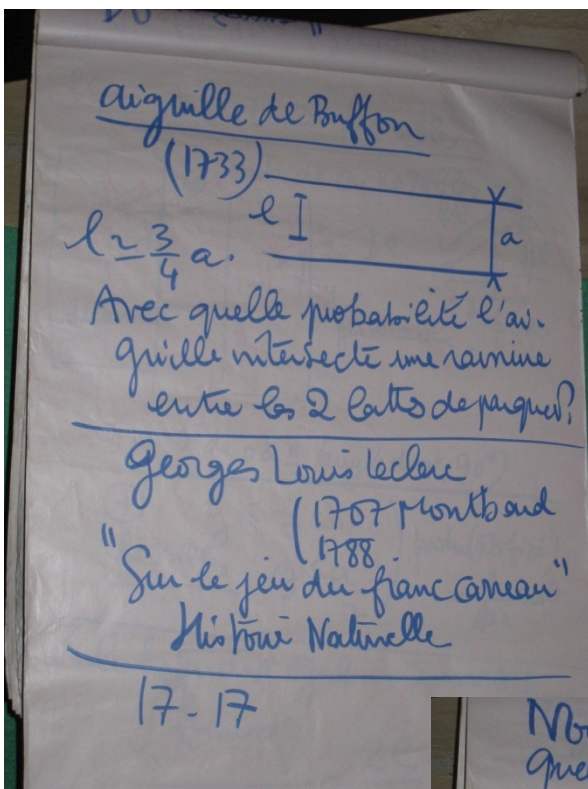 aiguille de Buffon
(1733)
l
a
l ≃ 3/4 a.
Avec quelle probabilité l'ai-
guille intersecte une rainure
entre les 2 lattes de parquet?
Georges Louis Leclerc
(1707 Montbard
1788
"Sur le jeu du franc carreau"
Histoire Naturelle
17-17